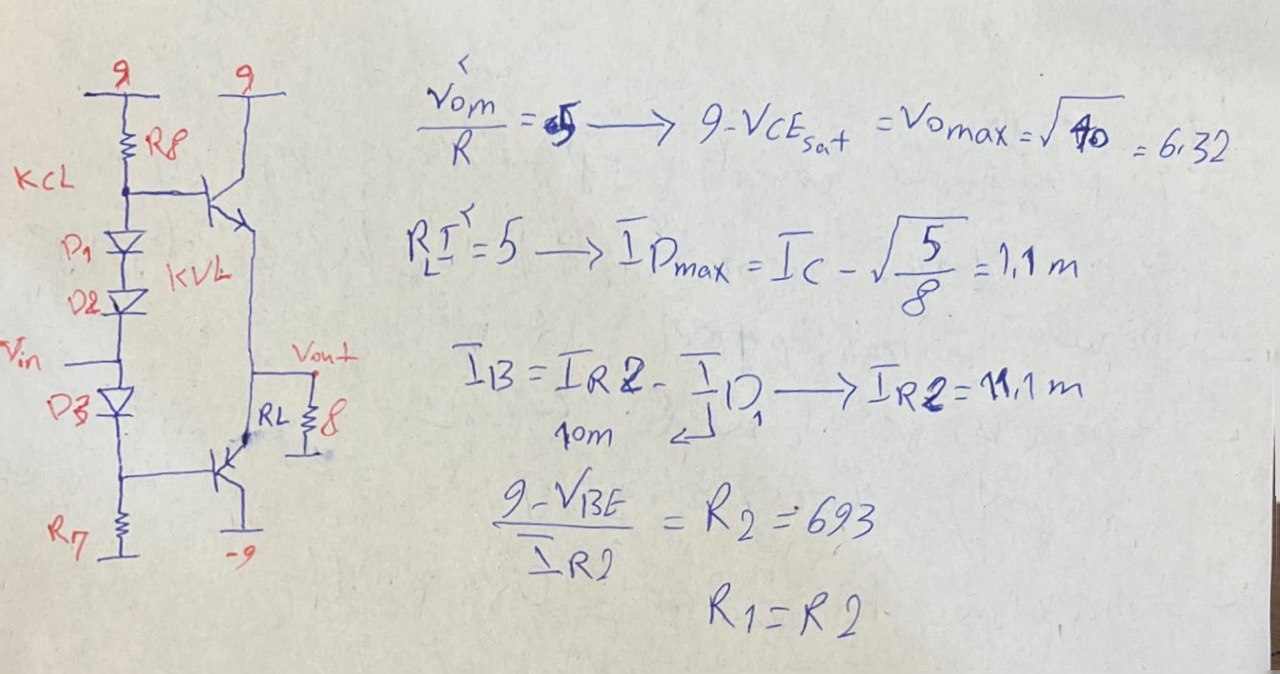 9 9
R8
KCL
D1
KVL
D2
Vin
Vout
D3
RL 8
R7
-9
Vom² / R = 5 → 9 - VCEsat = Vomax = √40 = 6.32
RL I² = 5 → IDmax = IC - √5/8 = 1,1 m
IB = IR2 - ID1 → IR2 = 11,1 m
10m
9 - VBE / IR2 = R2 = 693
R1 = R2